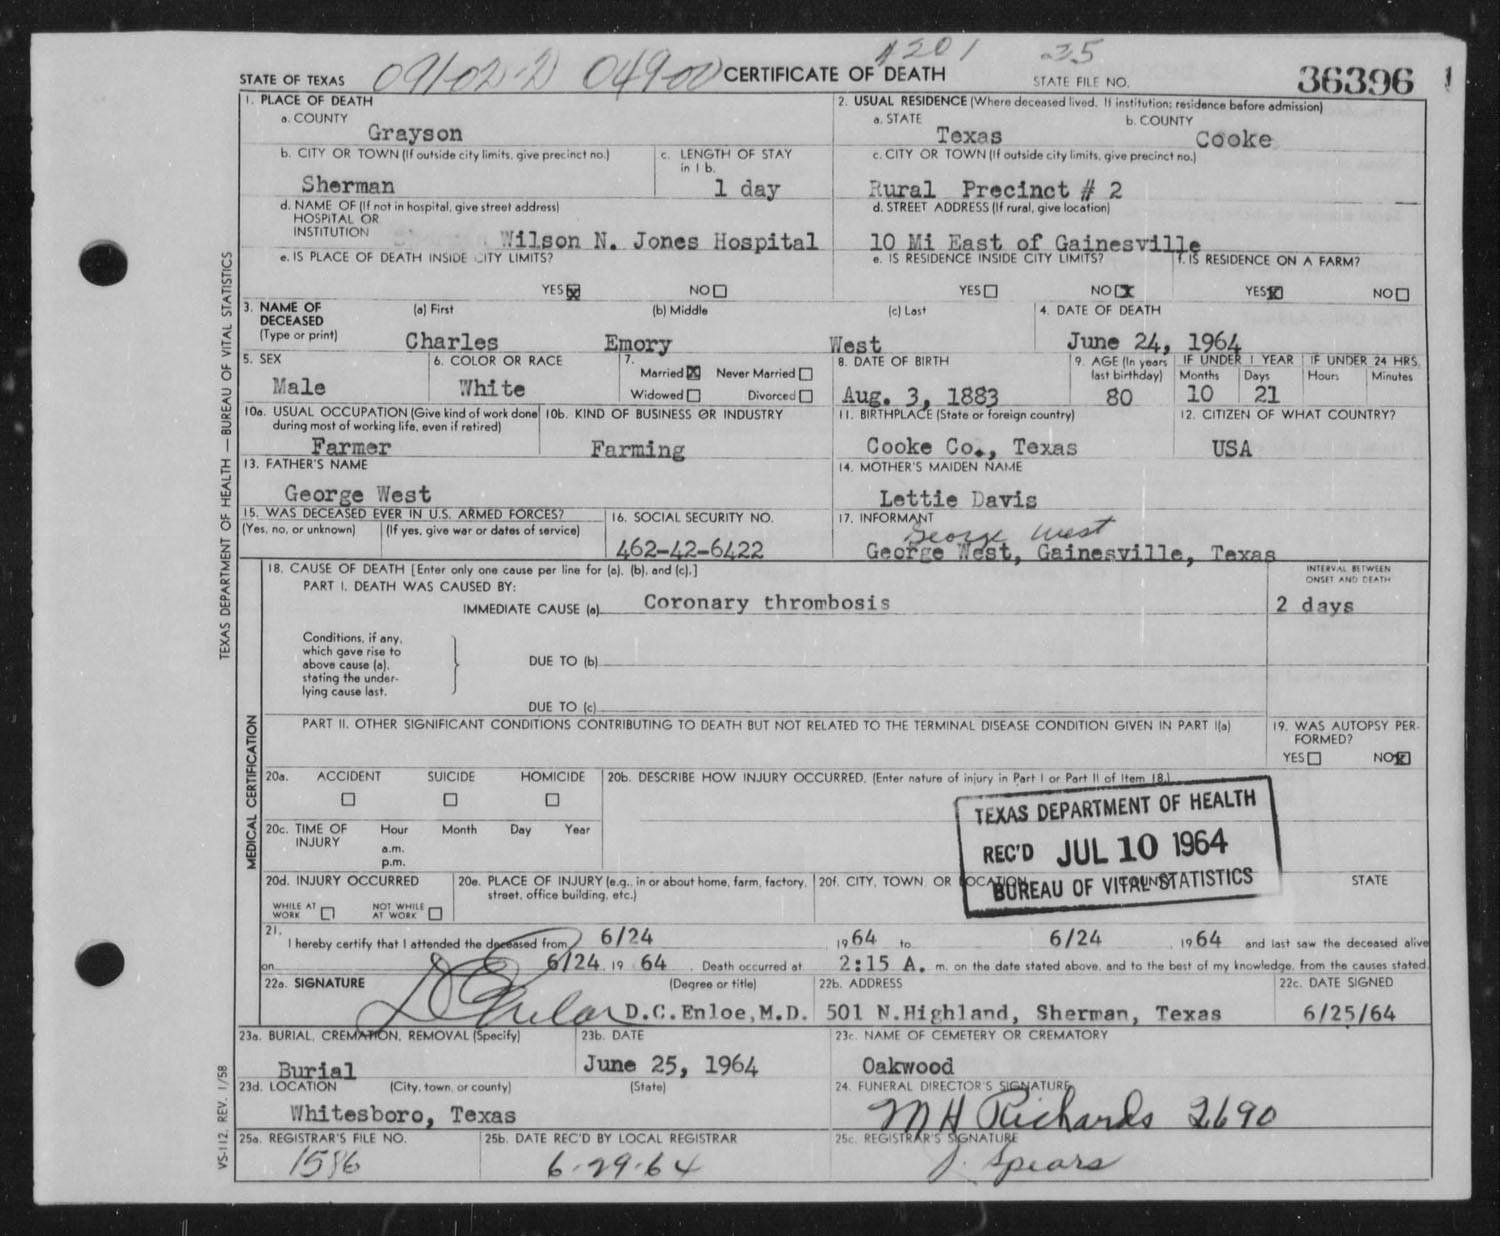 STATE OF TEXAS 09102-2 04900 CERTIFICATE OF DEATH 4201 35 STATE FILE NO. 36396
1. PLACE OF DEATH
a. COUNTY
Grayson
2. USUAL RESIDENCE (Where deceased lived. If institution: residence before admission)
a. STATE b. COUNTY
Texas Cooke
b. CITY OR TOWN (If outside city limits, give precinct no.)
Sherman
c. LENGTH OF STAY
in 1 b.
1 day
c. CITY OR TOWN (If outside city limits, give precinct no.)
Rural Precinct # 2
d. NAME OF (If not in hospital, give street address)
HOSPITAL OR
INSTITUTION
Wilson N. Jones Hospital
d. STREET ADDRESS (If rural, give location)
10 Mi East of Gainesville
e. IS PLACE OF DEATH INSIDE CITY LIMITS?
YES☒ NO☐
e. IS RESIDENCE INSIDE CITY LIMITS?
YES☐ NO☒
f. IS RESIDENCE ON A FARM?
YES☒ NO☐
3. NAME OF
DECEASED
(Type or print)
(a) First (b) Middle (c) Last
Charles Emory West
4. DATE OF DEATH
June 24, 1964
5. SEX
Male
6. COLOR OR RACE
White
7.
Married☒ Never Married☐
Widowed☐ Divorced☐
8. DATE OF BIRTH
Aug. 3, 1883
9. AGE (In years
last birthday)
80
IF UNDER 1 YEAR
Months Days
10 21
IF UNDER 24 HRS.
Hours Minutes
10a. USUAL OCCUPATION (Give kind of work done
during most of working life, even if retired)
Farmer
10b. KIND OF BUSINESS OR INDUSTRY
Farming
11. BIRTHPLACE (State or foreign country)
Cooke Co., Texas
12. CITIZEN OF WHAT COUNTRY?
USA
13. FATHER'S NAME
George West
14. MOTHER'S MAIDEN NAME
Lettie Davis
15. WAS DECEASED EVER IN U.S. ARMED FORCES?
(Yes, no, or unknown) (If yes, give war or dates of service)
16. SOCIAL SECURITY NO.
462-42-6422
17. INFORMANT
George West
George West, Gainesville, Texas
18. CAUSE OF DEATH [Enter only one cause per line for (a), (b), and (c).]
PART I. DEATH WAS CAUSED BY:
IMMEDIATE CAUSE (a) Coronary thrombosis
INTERVAL BETWEEN
ONSET AND DEATH
2 days
Conditions, if any,
which gave rise to
above cause (a),
stating the under-
lying cause last.
DUE TO (b)
DUE TO (c)
PART II. OTHER SIGNIFICANT CONDITIONS CONTRIBUTING TO DEATH BUT NOT RELATED TO THE TERMINAL DISEASE CONDITION GIVEN IN PART I(a)
19. WAS AUTOPSY PER-
FORMED?
YES☐ NO☒
20a. ACCIDENT SUICIDE HOMICIDE
☐ ☐ ☐
20b. DESCRIBE HOW INJURY OCCURRED. (Enter nature of injury in Part I or Part II of Item 18.)
20c. TIME OF
INJURY
Hour Month Day Year
a.m.
p.m.
TEXAS DEPARTMENT OF HEALTH
REC'D JUL 10 1964
BUREAU OF VITAL STATISTICS
20d. INJURY OCCURRED
WHILE AT
WORK ☐
NOT WHILE
AT WORK ☐
20e. PLACE OF INJURY (e.g., in or about home, farm, factory,
street, office building, etc.)
20f. CITY, TOWN, OR LOCATION COUNTY STATE
21.
I hereby certify that I attended the deceased from 6/24 1964 to 6/24, 1964 and last saw the deceased alive
on 6/24, 1964. Death occurred at 2:15 A. m. on the date stated above, and to the best of my knowledge, from the causes stated.
22a. SIGNATURE (Degree or title)
D C Enloe D.C.Enloe,M.D.
22b. ADDRESS
501 N.Highland, Sherman, Texas
22c. DATE SIGNED
6/25/64
23a. BURIAL, CREMATION, REMOVAL (Specify)
Burial
23b. DATE
June 25, 1964
23c. NAME OF CEMETERY OR CREMATORY
Oakwood
23d. LOCATION (City, town, or county) (State)
Whitesboro, Texas
24. FUNERAL DIRECTOR'S SIGNATURE
M H Richards 2690
25a. REGISTRAR'S FILE NO.
1586
25b. DATE REC'D BY LOCAL REGISTRAR
6-29-64
25c. REGISTRAR'S SIGNATURE
J. Spears
TEXAS DEPARTMENT OF HEALTH — BUREAU OF VITAL STATISTICS
MEDICAL CERTIFICATION
VS-112, REV. 1/58